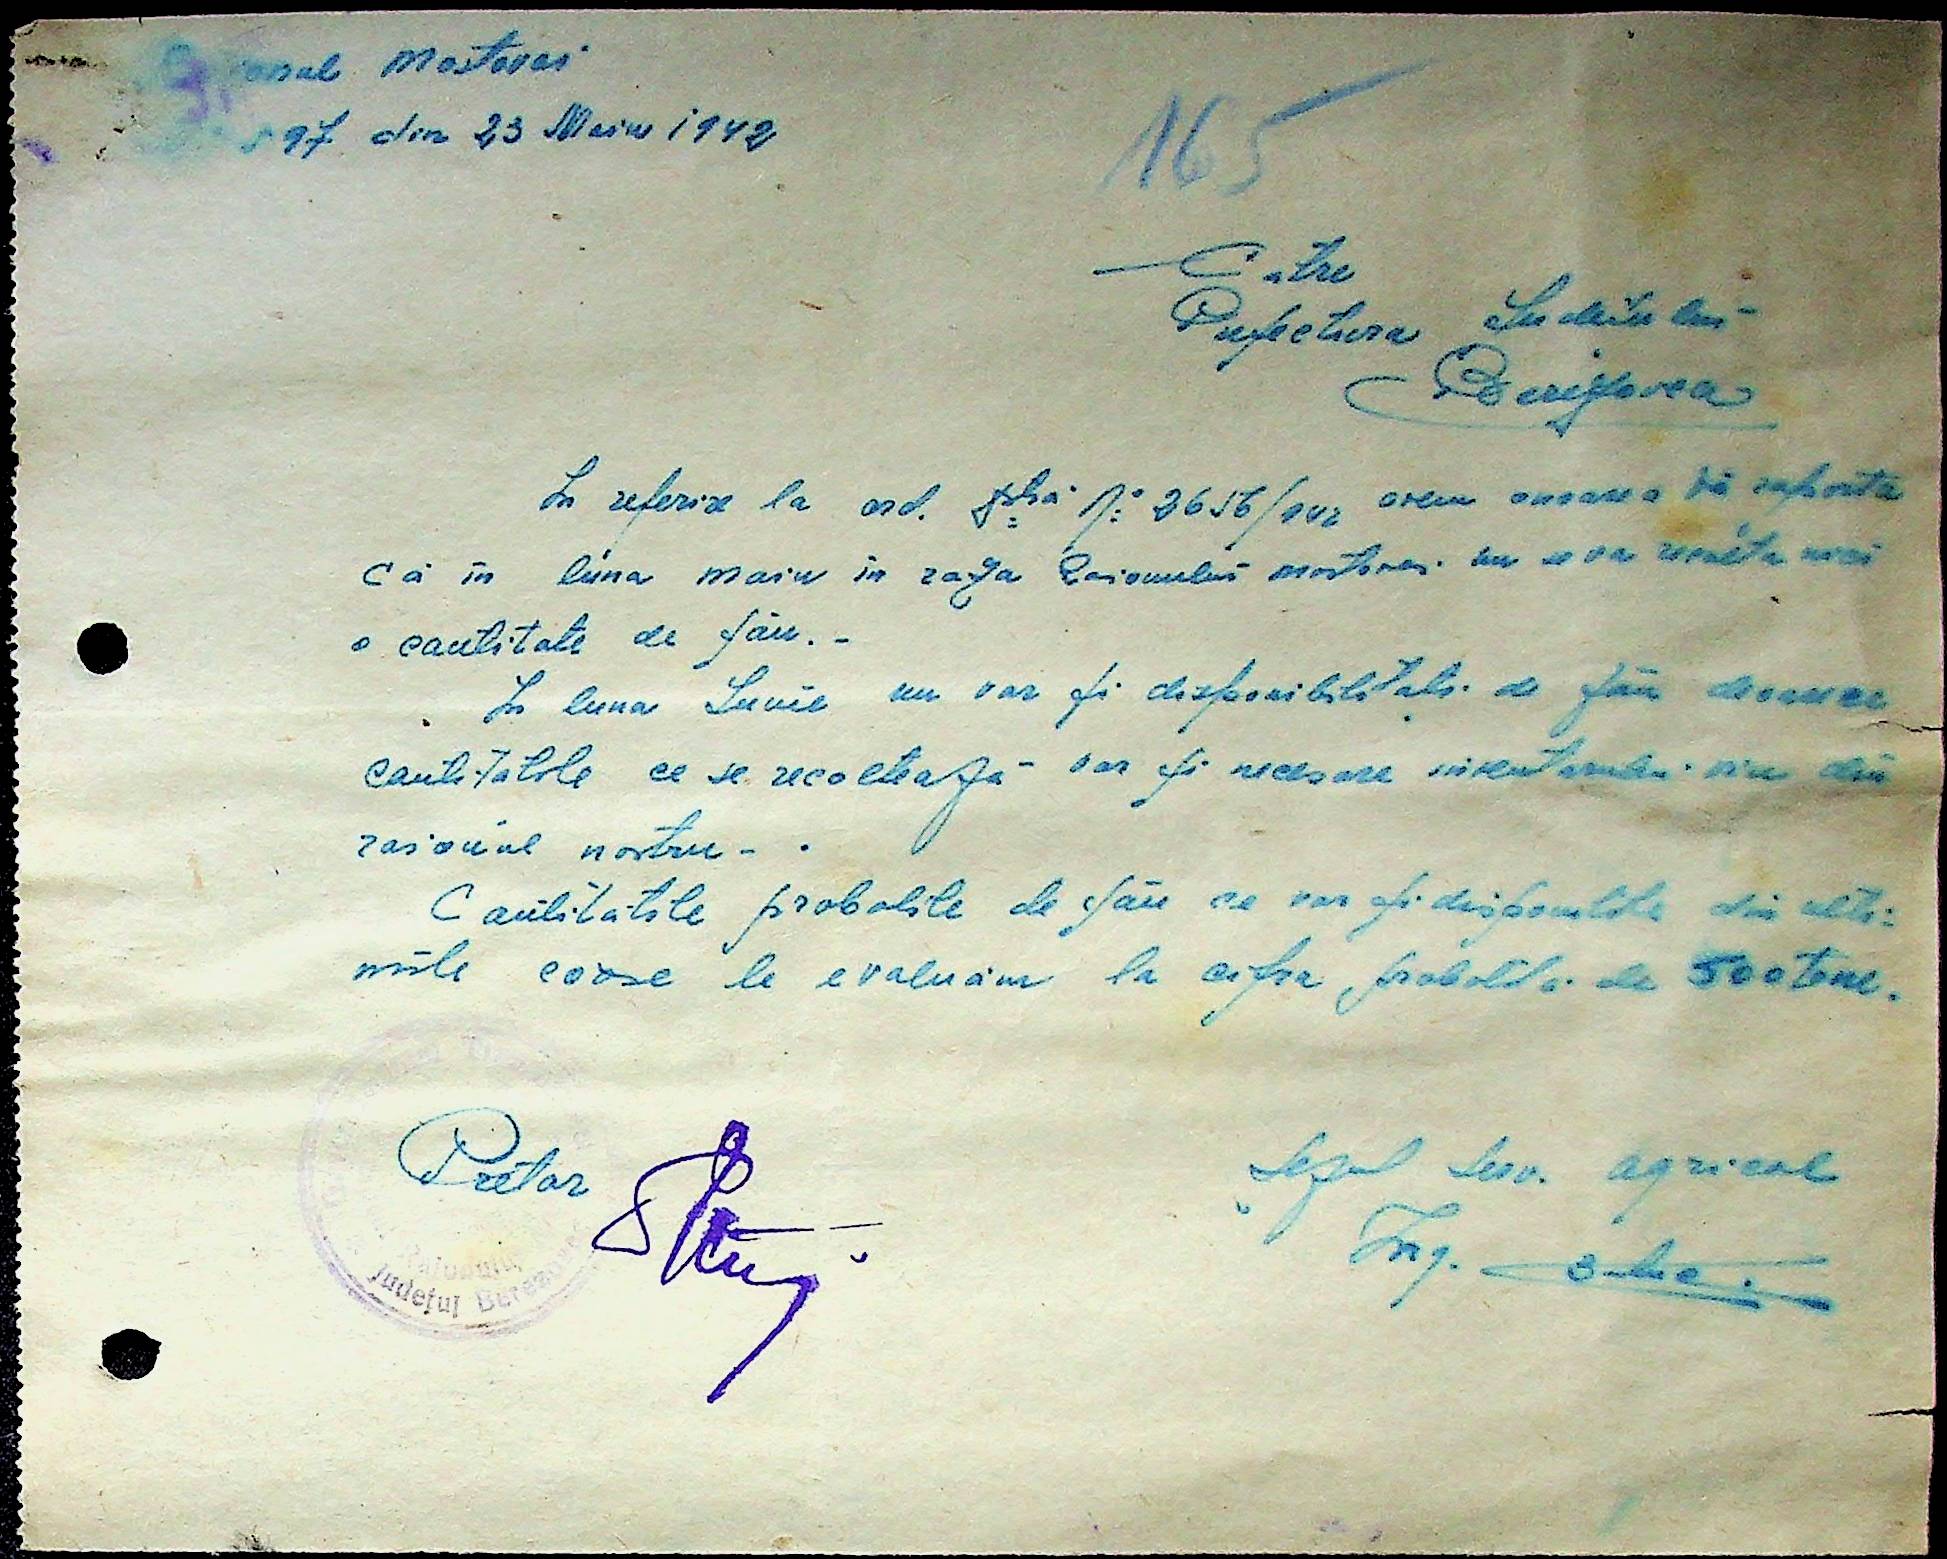 Mostovoi
897 din 23 Maiu 1942
165
Către
Prefectura Judetului
Berezovca
In referire la ord. Nº 2656/942 avem onoarea vă raporta
că în luna Maiu în raza Raionului Mostovoi nu se va recolta nici
o cantitate de fân.-
In luna Iunie nu vor fi disponibilitati de fân deoarece
cantitatile ce se recoltează vor fi necesare inventarului viu din
raionul nostru-.
Cantitatile probabile de fân ce vor fi disponibile din ulti=
mile coase le evaluăm la cifra probabilă de 500 tone.
Pretor
Seful Serv. Agricol
Ing.
Judeţul